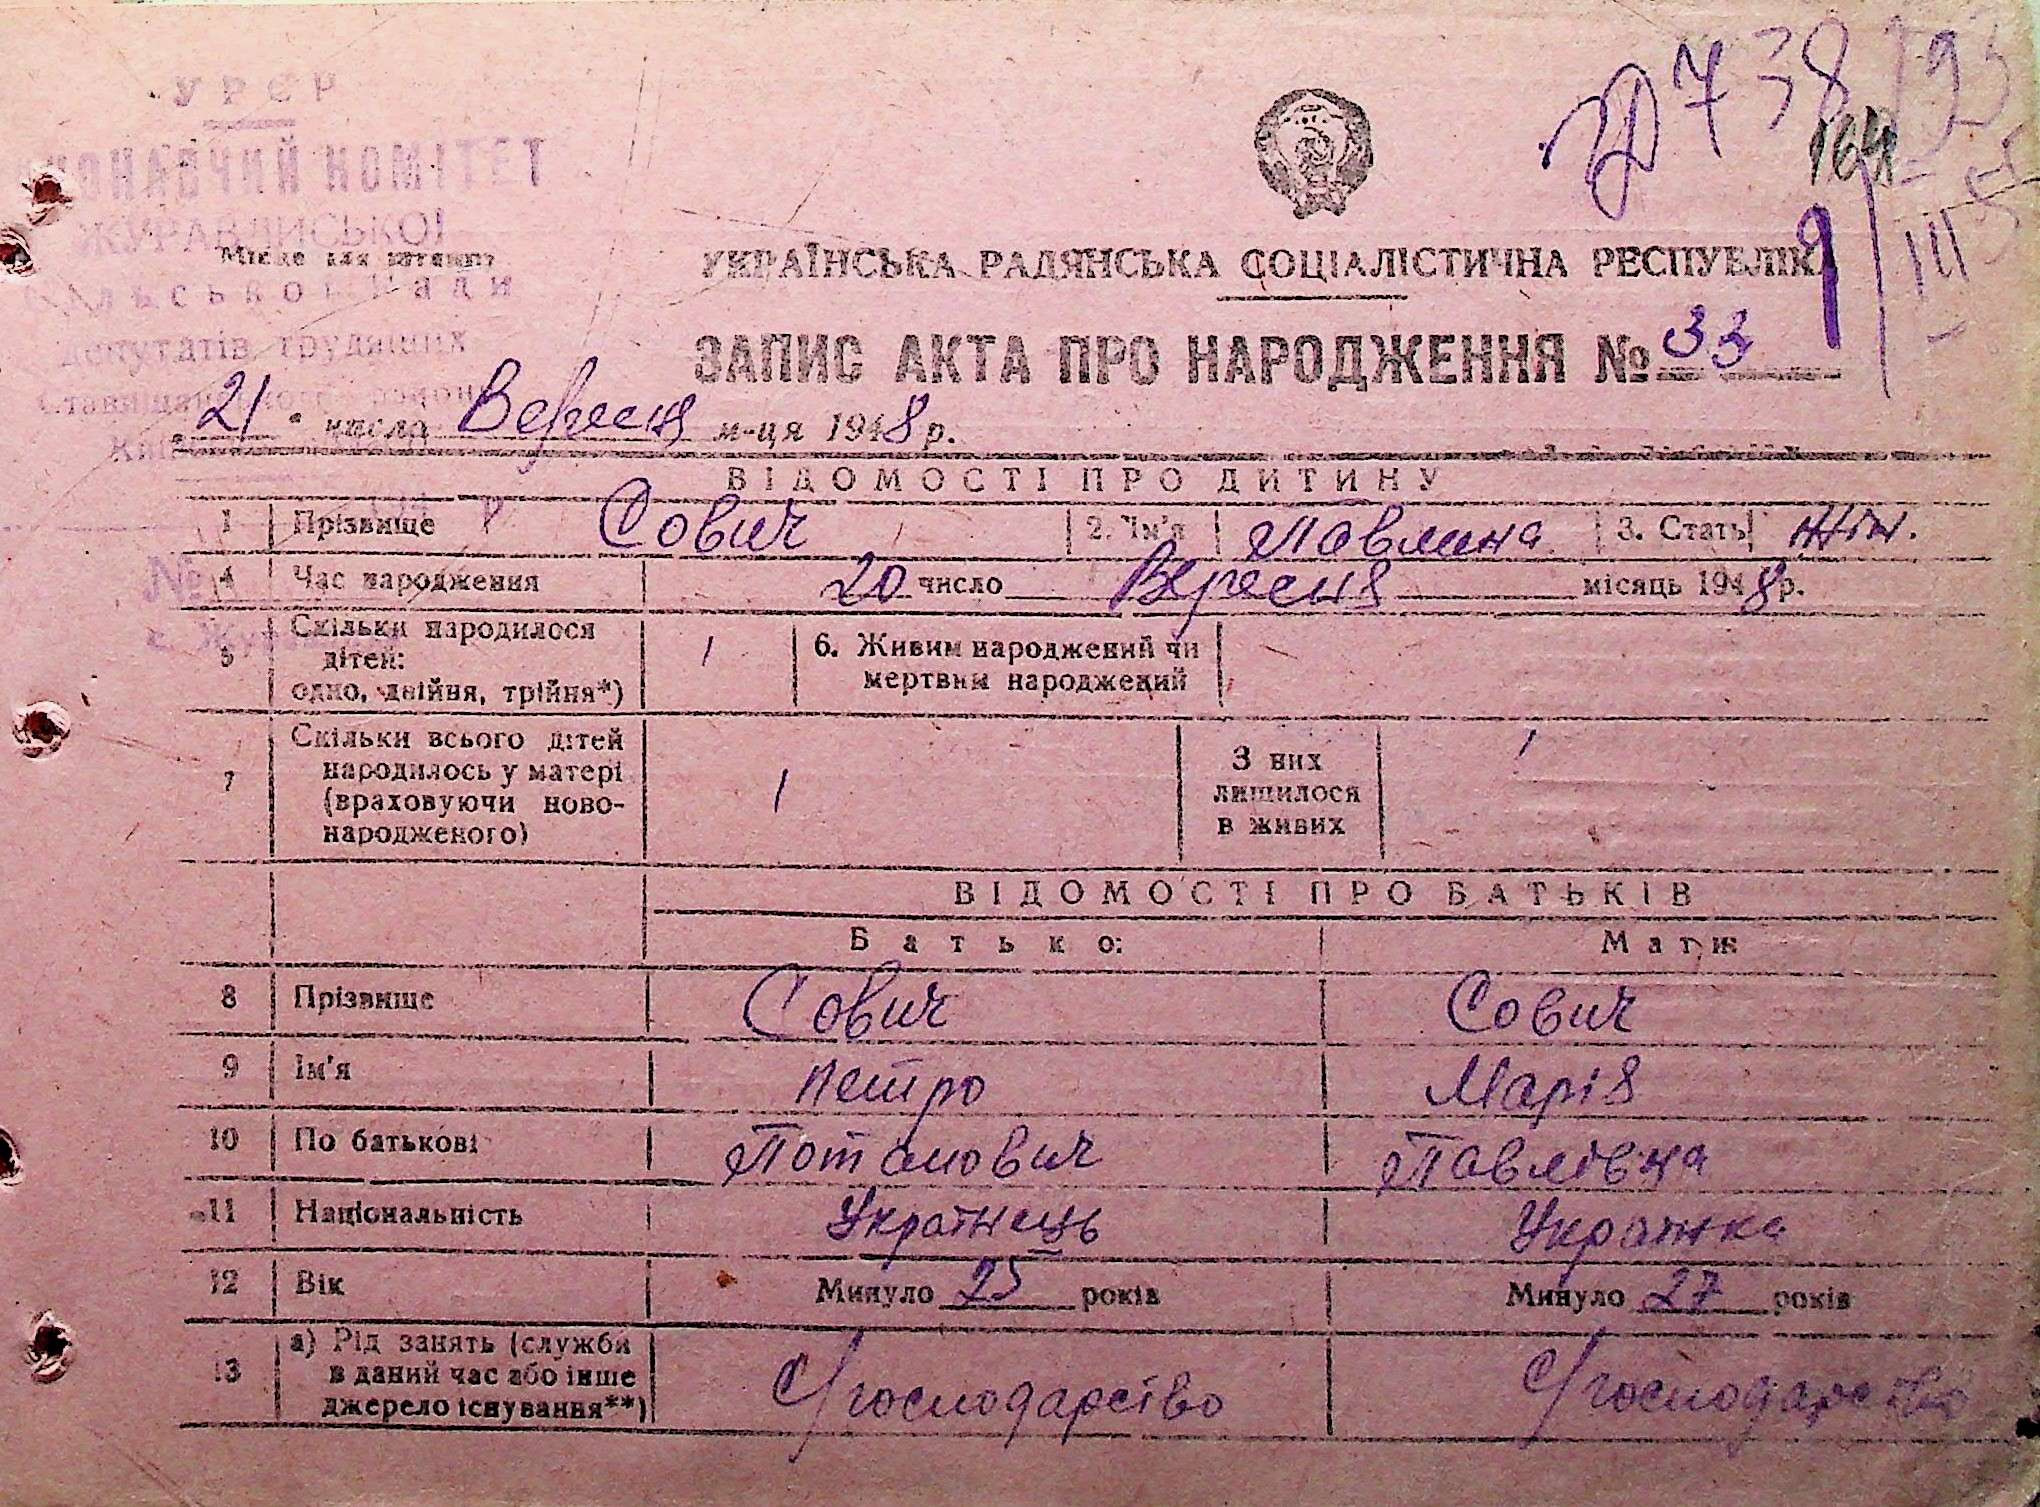 УРСР
ВИКОНАВЧИЙ КОМІТЕТ
ЖУРАВЛИСЬКОЇ
Місце для штампу
сільської Ради
депутатів трудящих
Ставищанського району
164
УКРАЇНСЬКА РАДЯНСЬКА СОЦІАЛІСТИЧНА РЕСПУБЛІКА
ЗАПИС АКТА ПРО НАРОДЖЕННЯ № 33
„21" числа Вересня м-ця 1948 р.
ВІДОМОСТІ ПРО ДИТИНУ
1 Прізвище Сович 2. Ім'я Павлина 3. Стать Жін.
4 Час народження 20 число Вересня місяць 1948 р.
5 Скільки народилося дітей: одно, двійня, трійня*) 1 6. Живим народжений чи мертвим народжений
7 Скільки всього дітей народилось у матері (враховуючи новонародженого) 1 З них лишилося в живих 1
ВІДОМОСТІ ПРО БАТЬКІВ
Батько: Мати:
8 Прізвище Сович Сович
9 Ім'я Петро Марія
10 По батькові Потапович Павлівна
11 Національність Українець Українка
12 Вік Минуло 25 років Минуло 27 років
13 а) Рід занять (служби в даний час або інше джерело існування**) С/господарство С/господарство